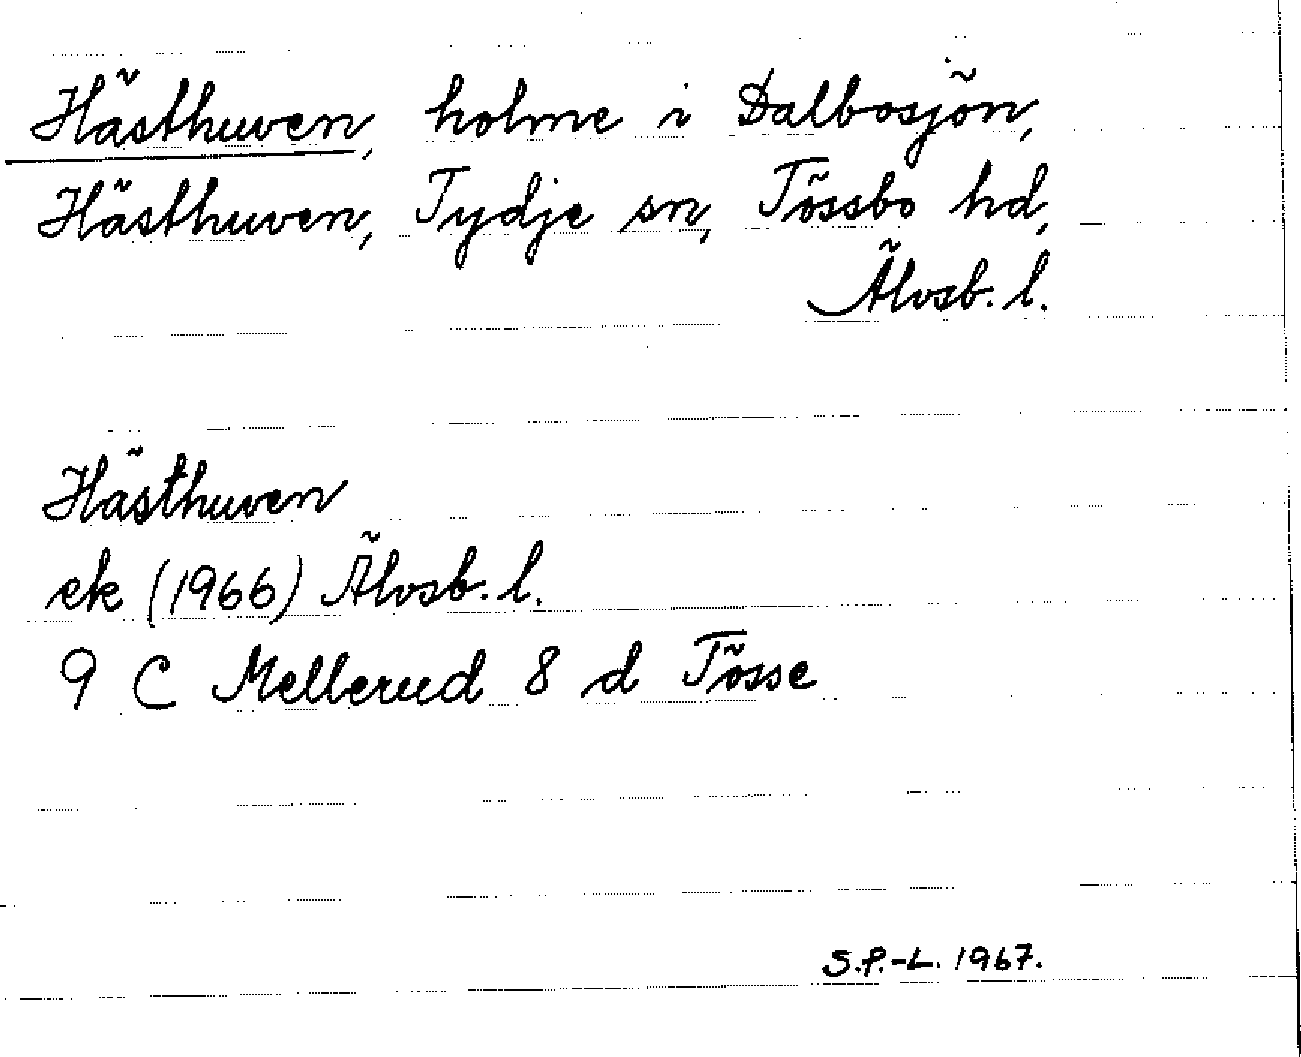 Hästhuven, holme i Dalbosjön,
Hästhuven, Tydje sn, Tössbo hd,
Älvsb. l.
Hästhuven
ek (1966) Älvsb. l.
9 C Mellerud 8 d Tösse
S.P.-L. 1967.